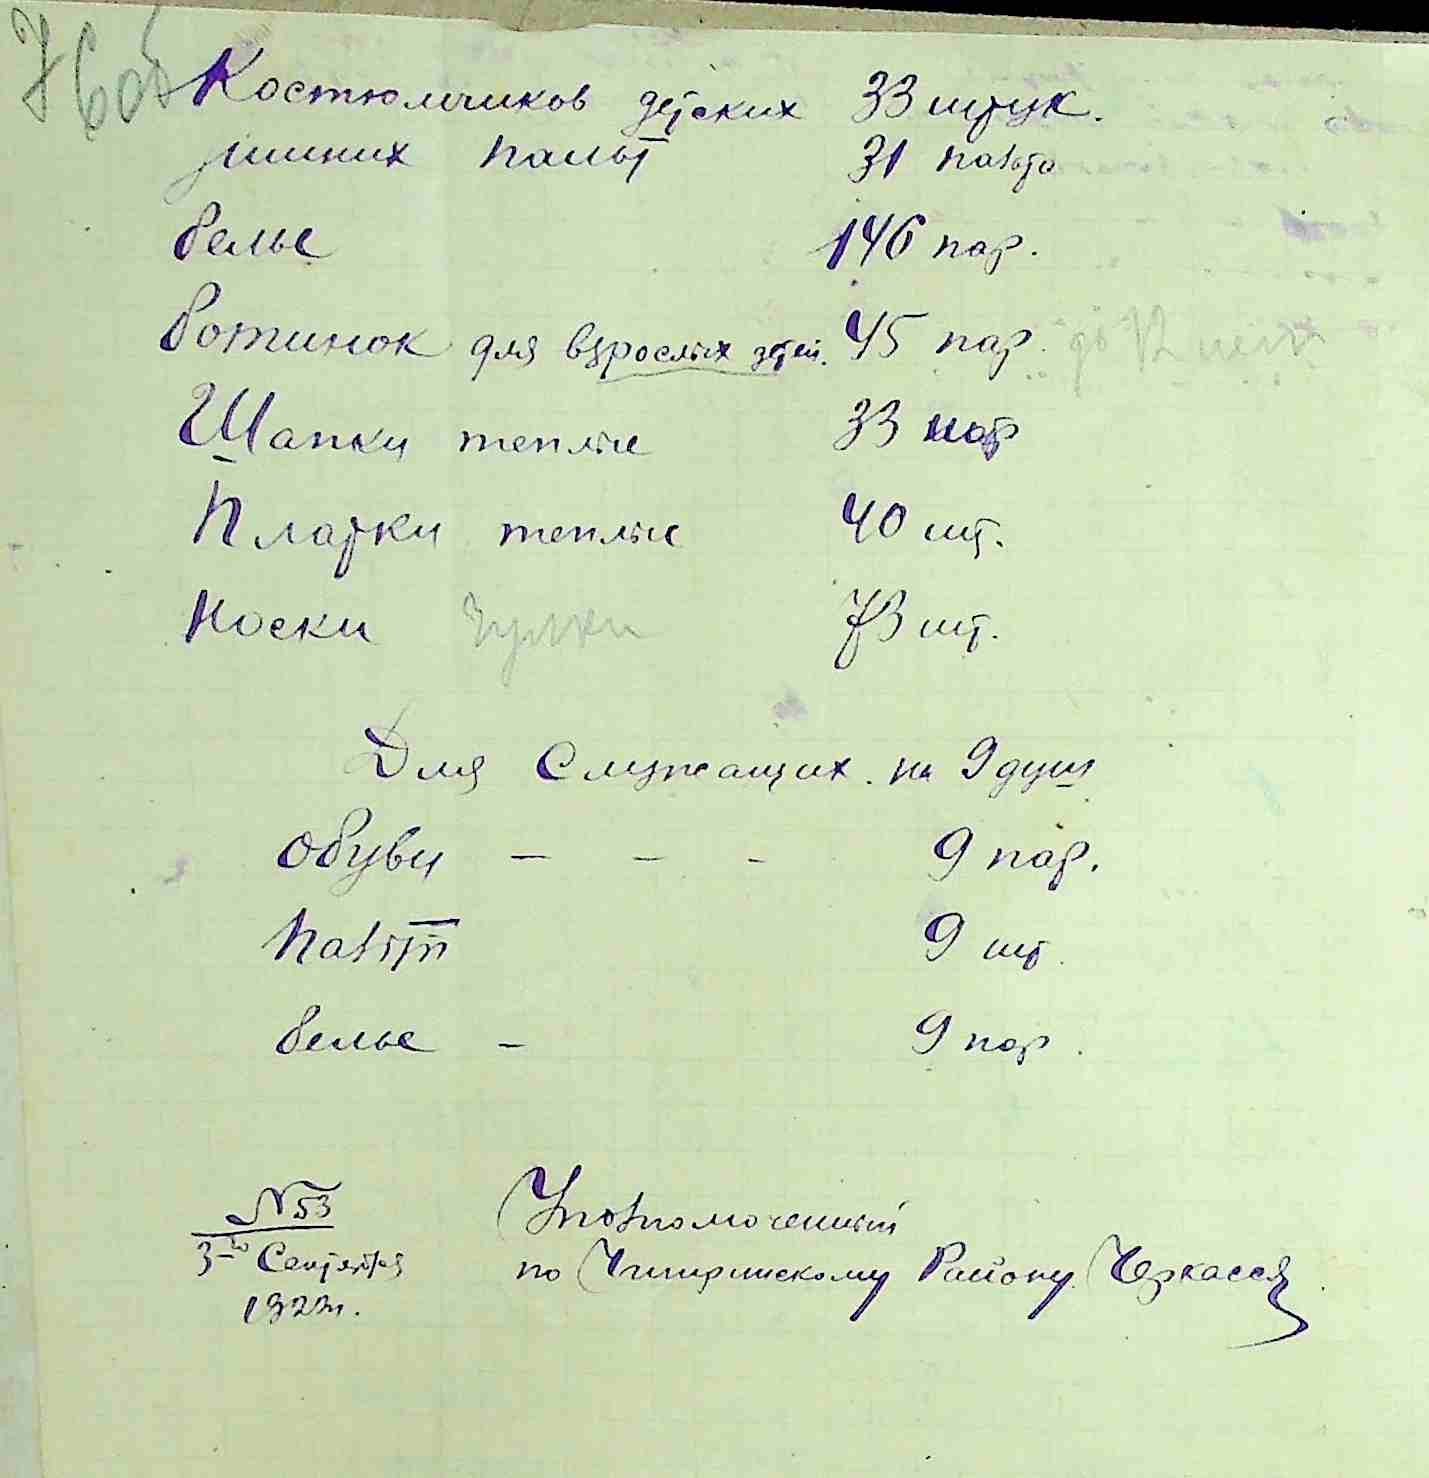 76об
Костюмчиков детских 33 штук.
зимних пальт 31 пальто
белье 146 пар.
Ботинок для взрослых детей. 45 пар. до 12 лет
Шапки теплые 33
Платки теплые 40 шт.
Носки чулки 73 шт.
Для Служащих на 9 душ
обуви - - - 9 пар.
пальт 9 шт.
белье - 9 пар.
N 53
3-го Сентября
1923 г.
Уполномоченный
по Чигиринскому Району Черкасся